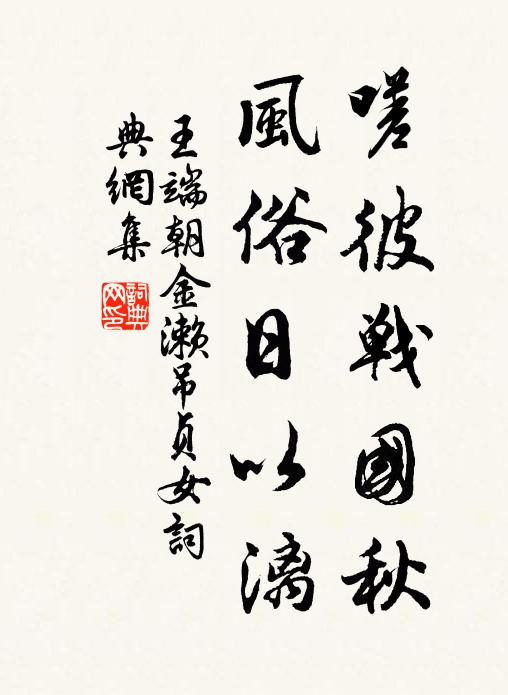 嗟彼戰國秋
風俗日以漓
王端朝金濑吊貞女詞
典網集
詞典网印